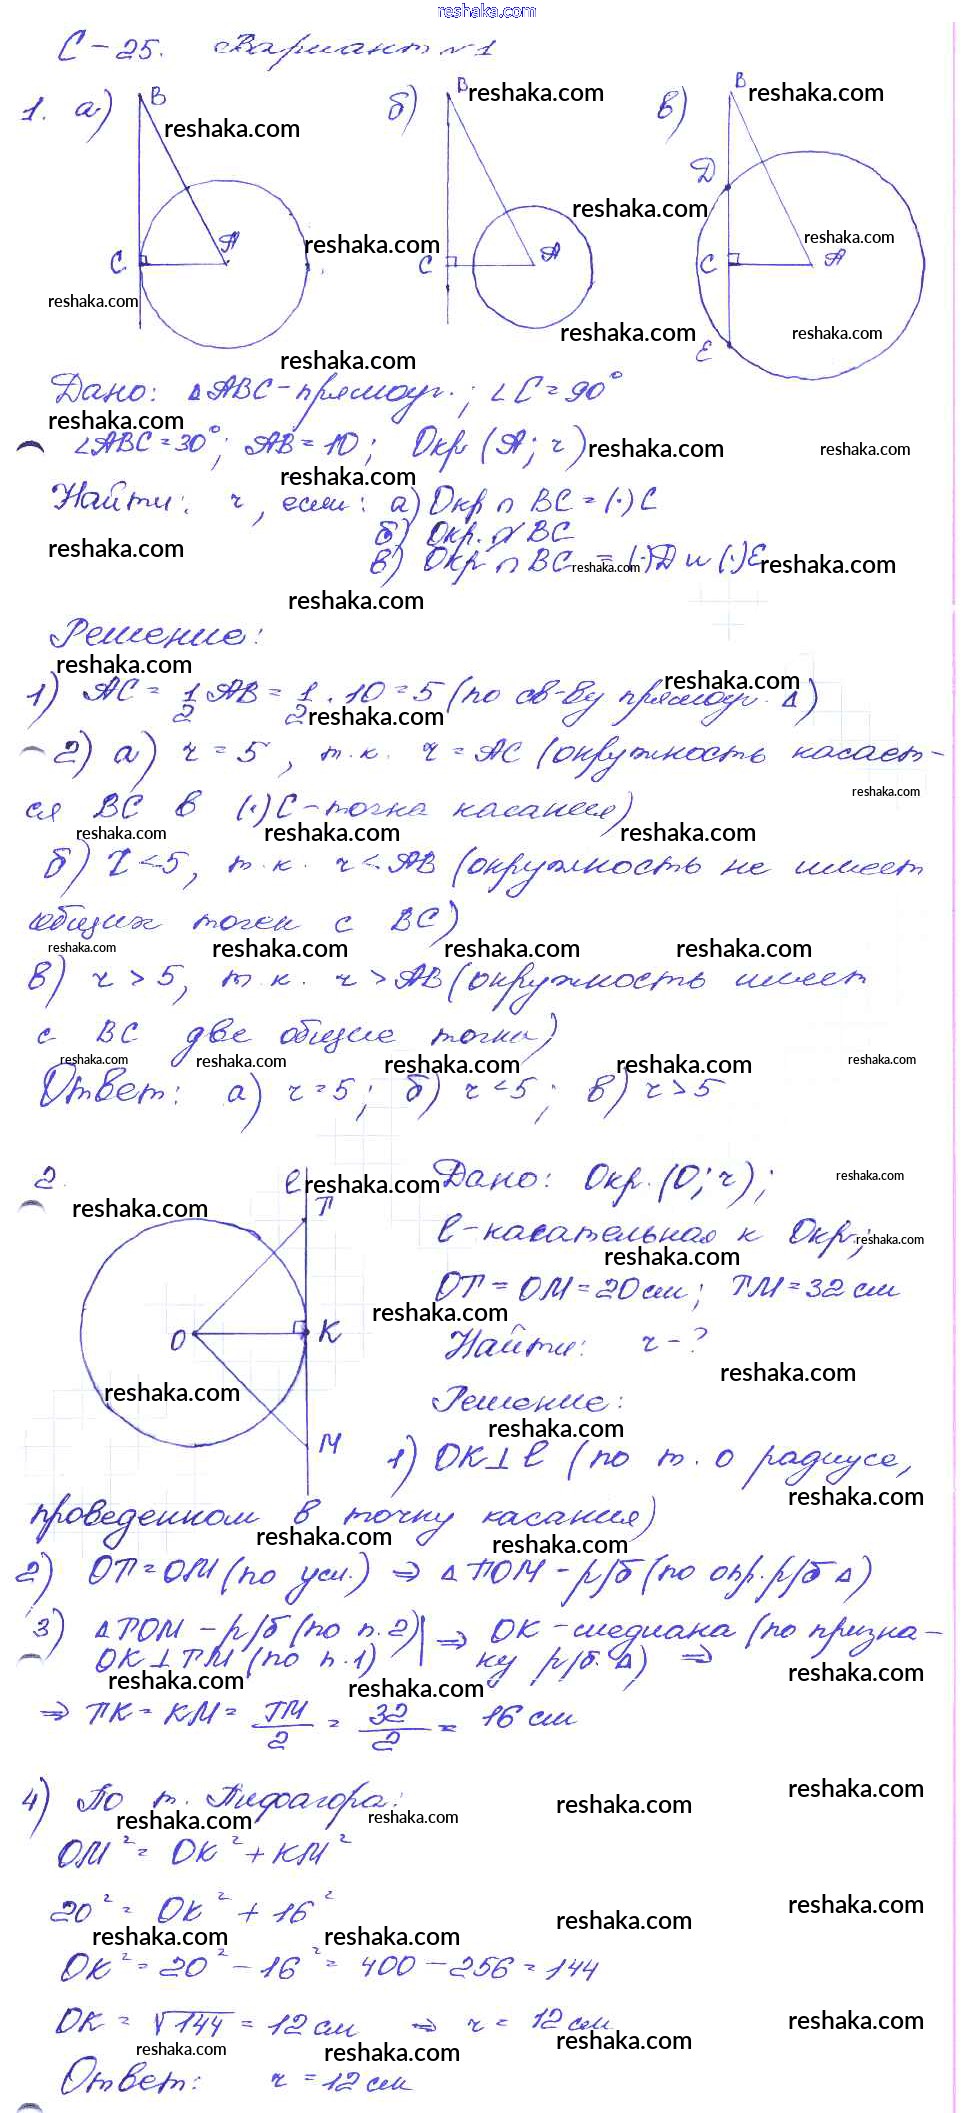 reshaka.com
С-25. Вариант №1
1. а) б) в)
B B B
D
A A A
C C C
E
Дано: △ABC-прямоуг.; ∠C=90°
∠ABC=30°; AB=10; Окр (A; r)
Найти: r, если: а) Окр ∩ BC = (·) C
б) Окр. ∩̸ BC
в) Окр ∩ BC = (·) D и (·) E
Решение:
1) AC = 1/2 AB = 1/2 · 10 = 5 (по св-ву прямоуг. △)
2) а) r = 5, т.к. r = AC (окружность касает-
ся BC в (·) C-точка касания)
б) r < 5, т.к. r < AB (окружность не имеет
общих точек с BC)
в) r > 5, т.к. r > AB (окружность имеет
с BC две общие точки)
Ответ: а) r = 5; б) r < 5; в) r > 5
2.
ℓ
П
O K
M
Дано: Окр. (O; r);
ℓ-касательная к Окр.;
OП = OM = 20 см; ПM = 32 см
Найти: r - ?
Решение:
1) OK ⊥ ℓ (по т. о радиусе,
проведенном в точку касания)
2) OП = OM (по усл.) ⇒ △ПOM - р/б (по опр. р/б △)
3) △ПOM - р/б (по п.2) | ⇒ OK-медиана (по призна-
OK ⊥ ПM (по п.1) | ку р/б. △) ⇒
⇒ ПK = KM = ПM/2 = 32/2 = 16 см
4) По т. Пифагора:
OM² = OK² + KM²
20² = OK² + 16²
OK² = 20² - 16² = 400 - 256 = 144
OK = √144 = 12 см ⇒ r = 12 см
Ответ: r = 12 см